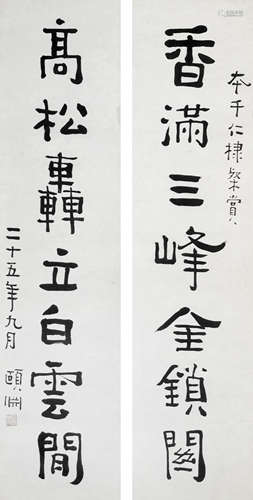 本千仁棣粲賞
香滿三峰金鎖關
高松轟立白雲間
二十五年九月
頤淵